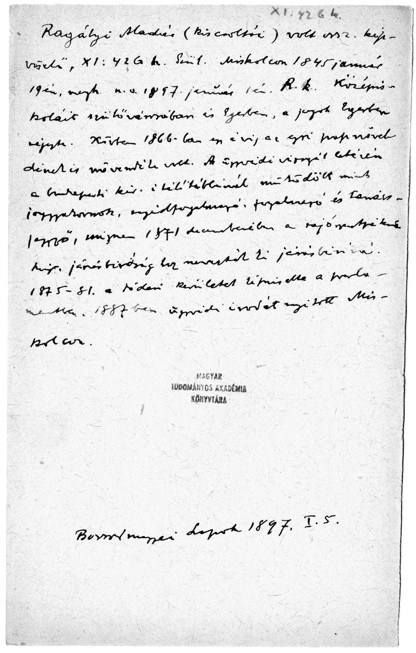 XI. 426 h.
Ragályi Aladár (kiscsoltói) volt orsz. kép-
viselő, XI: 426 h. Szül. Miskolcon 1845 január
19én, megh. u. o. 1897. január 1én. R. k. Középis-
koláit szülővárosában és Egerben, a jogot Egerben
végezte. Közben 1866-ban egy évig az egri papnövel
dének is növendéke volt. Az ügyvédi vizsgát letévén
a budapesti kir. ítélőtáblánál működött mint
joggyakornok, segédfogalmazó, fogalmazó és tanács-
jegyző, mignem 1871 decemberében a
kir. járásbíróság nevezték ki járásbíróvá.
1875-81. a kerületet képviselte a parla-
mentben. 1887ben ügyvédi irodát nyitott Mis-
kolcon.
MAGYAR
TUDOMÁNYOS AKADÉMIA
KÖNYVTÁRA
Borsodmegyei Lapok 1897. I. 5.